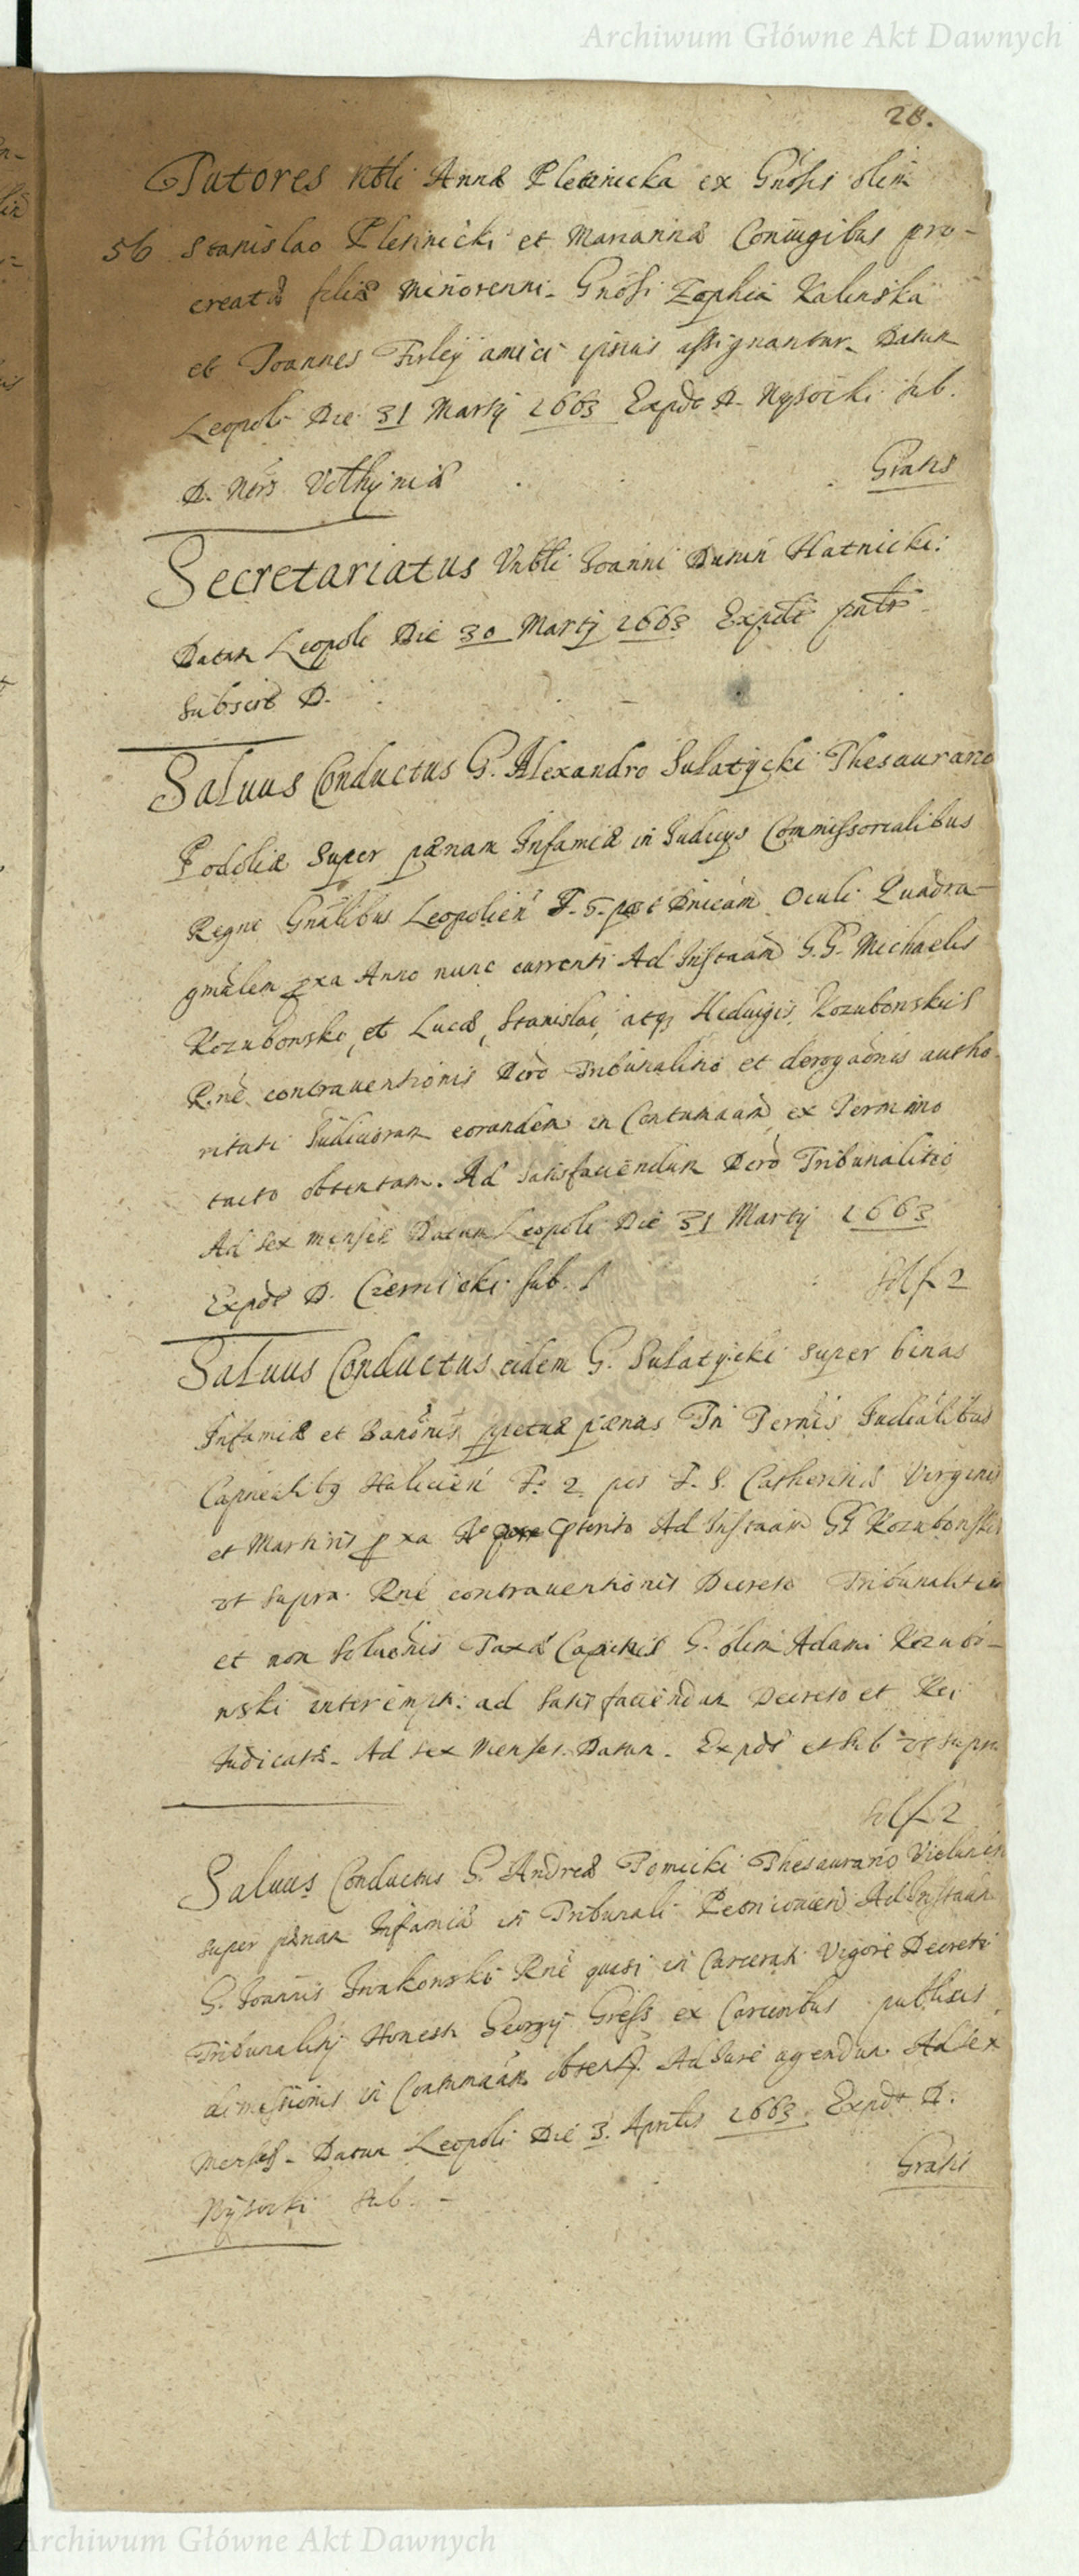 Archiwum Główne Akt Dawnych
28.
Tutores Nbli Annæ Plesinicka ex Gnosis olim
56 Stanislao Plesinicki et Marianna Coniugibus pro-
creatæ filiæ minorenni. Gnosi Zophia Kalinska
et Joannes Firleÿ amici ipsius assignantur. Datum
Leopoli Die 31 Martÿ 1663 Expdt D. Wysocki sub.
D. Nris Volhyniæ Gratis
Secretariatus Vnbli Joanni Dunin Hatnicki:
Datum Leopoli Die 30 Martÿ 1663 Expdt
Subscrib D.
Saluus Conductus G. Alexandro Sulatycki Thesaurario
Podoliæ super pænam Infamiæ in Iudicÿs Commissorialibus
Regni Gnalibus Leopolien F. 5. post Dnicam Oculi Quadra-
gmalem pxa Anno nunc currenti Ad Instaam G.G. Michaelis
Kozubonski, et Lucæ, Stanislai, atq Heduigis Kozubonskies
Rne contrauentionis Dcro Tribunalitio et derogaonis autho-
ritati Iudiciorum eorundem in Contumaam ex Termino
tacto obtentam. Ad satisfaciendum Dcro Tribunalitio
Ad sex menses Datum Leopoli Die 31 Martÿ 1663
Expdt D. Czernicki sub. 2
Saluus Conductus eidem G. Sulatycki super binas
Infamiæ et Banonis ppetuæ pænas In Termis Iudicialibus
Halicien F. 2 F. S. Catherinæ Virginis
et Martiris pxa Ad Instaam GG Kozubonskie
vt supra Rne contrauentionis Decreto Tribunalitio
et non Soluonis Taxæ Capitis G. olim Adami Kozubo-
nski interempti: ad satisfaciendum Decreto et Rei
Iudicatæ. Ad sex Menses. Datum. Expdt et sub vt supra
2
Saluus Conductus G. Andreæ Tomicki Thesaurario Vielunen
super pænam Infamiæ in Tribunali Petricouien Ad Instaam
G. Joannis Rne quasi in Carcerati Vigore Decreti
Tribunalitÿ Honesti Georgÿ Gress ex Carceribus publicis
dimissionis in Contumaam obtent. Ad Iure agendum. Ad sex
menses. Datum Leopoli Die 3. Aprilis 1663. Expdt D.
Wÿsocki sub. Gratis
Archiwum Główne Akt Dawnych